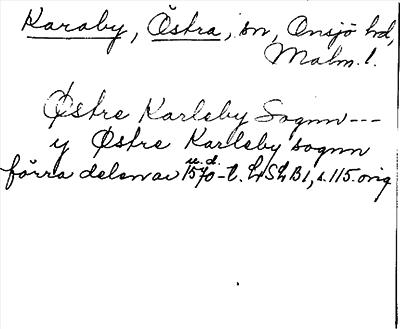 Karaby, Östra, sn, Onsjö hd,
Malm. l.
Østre Karleby Sognn ---
y Østre Karleby sognn
u. d.
förra delen av 1570-t. LSLB1, s. 115. orig